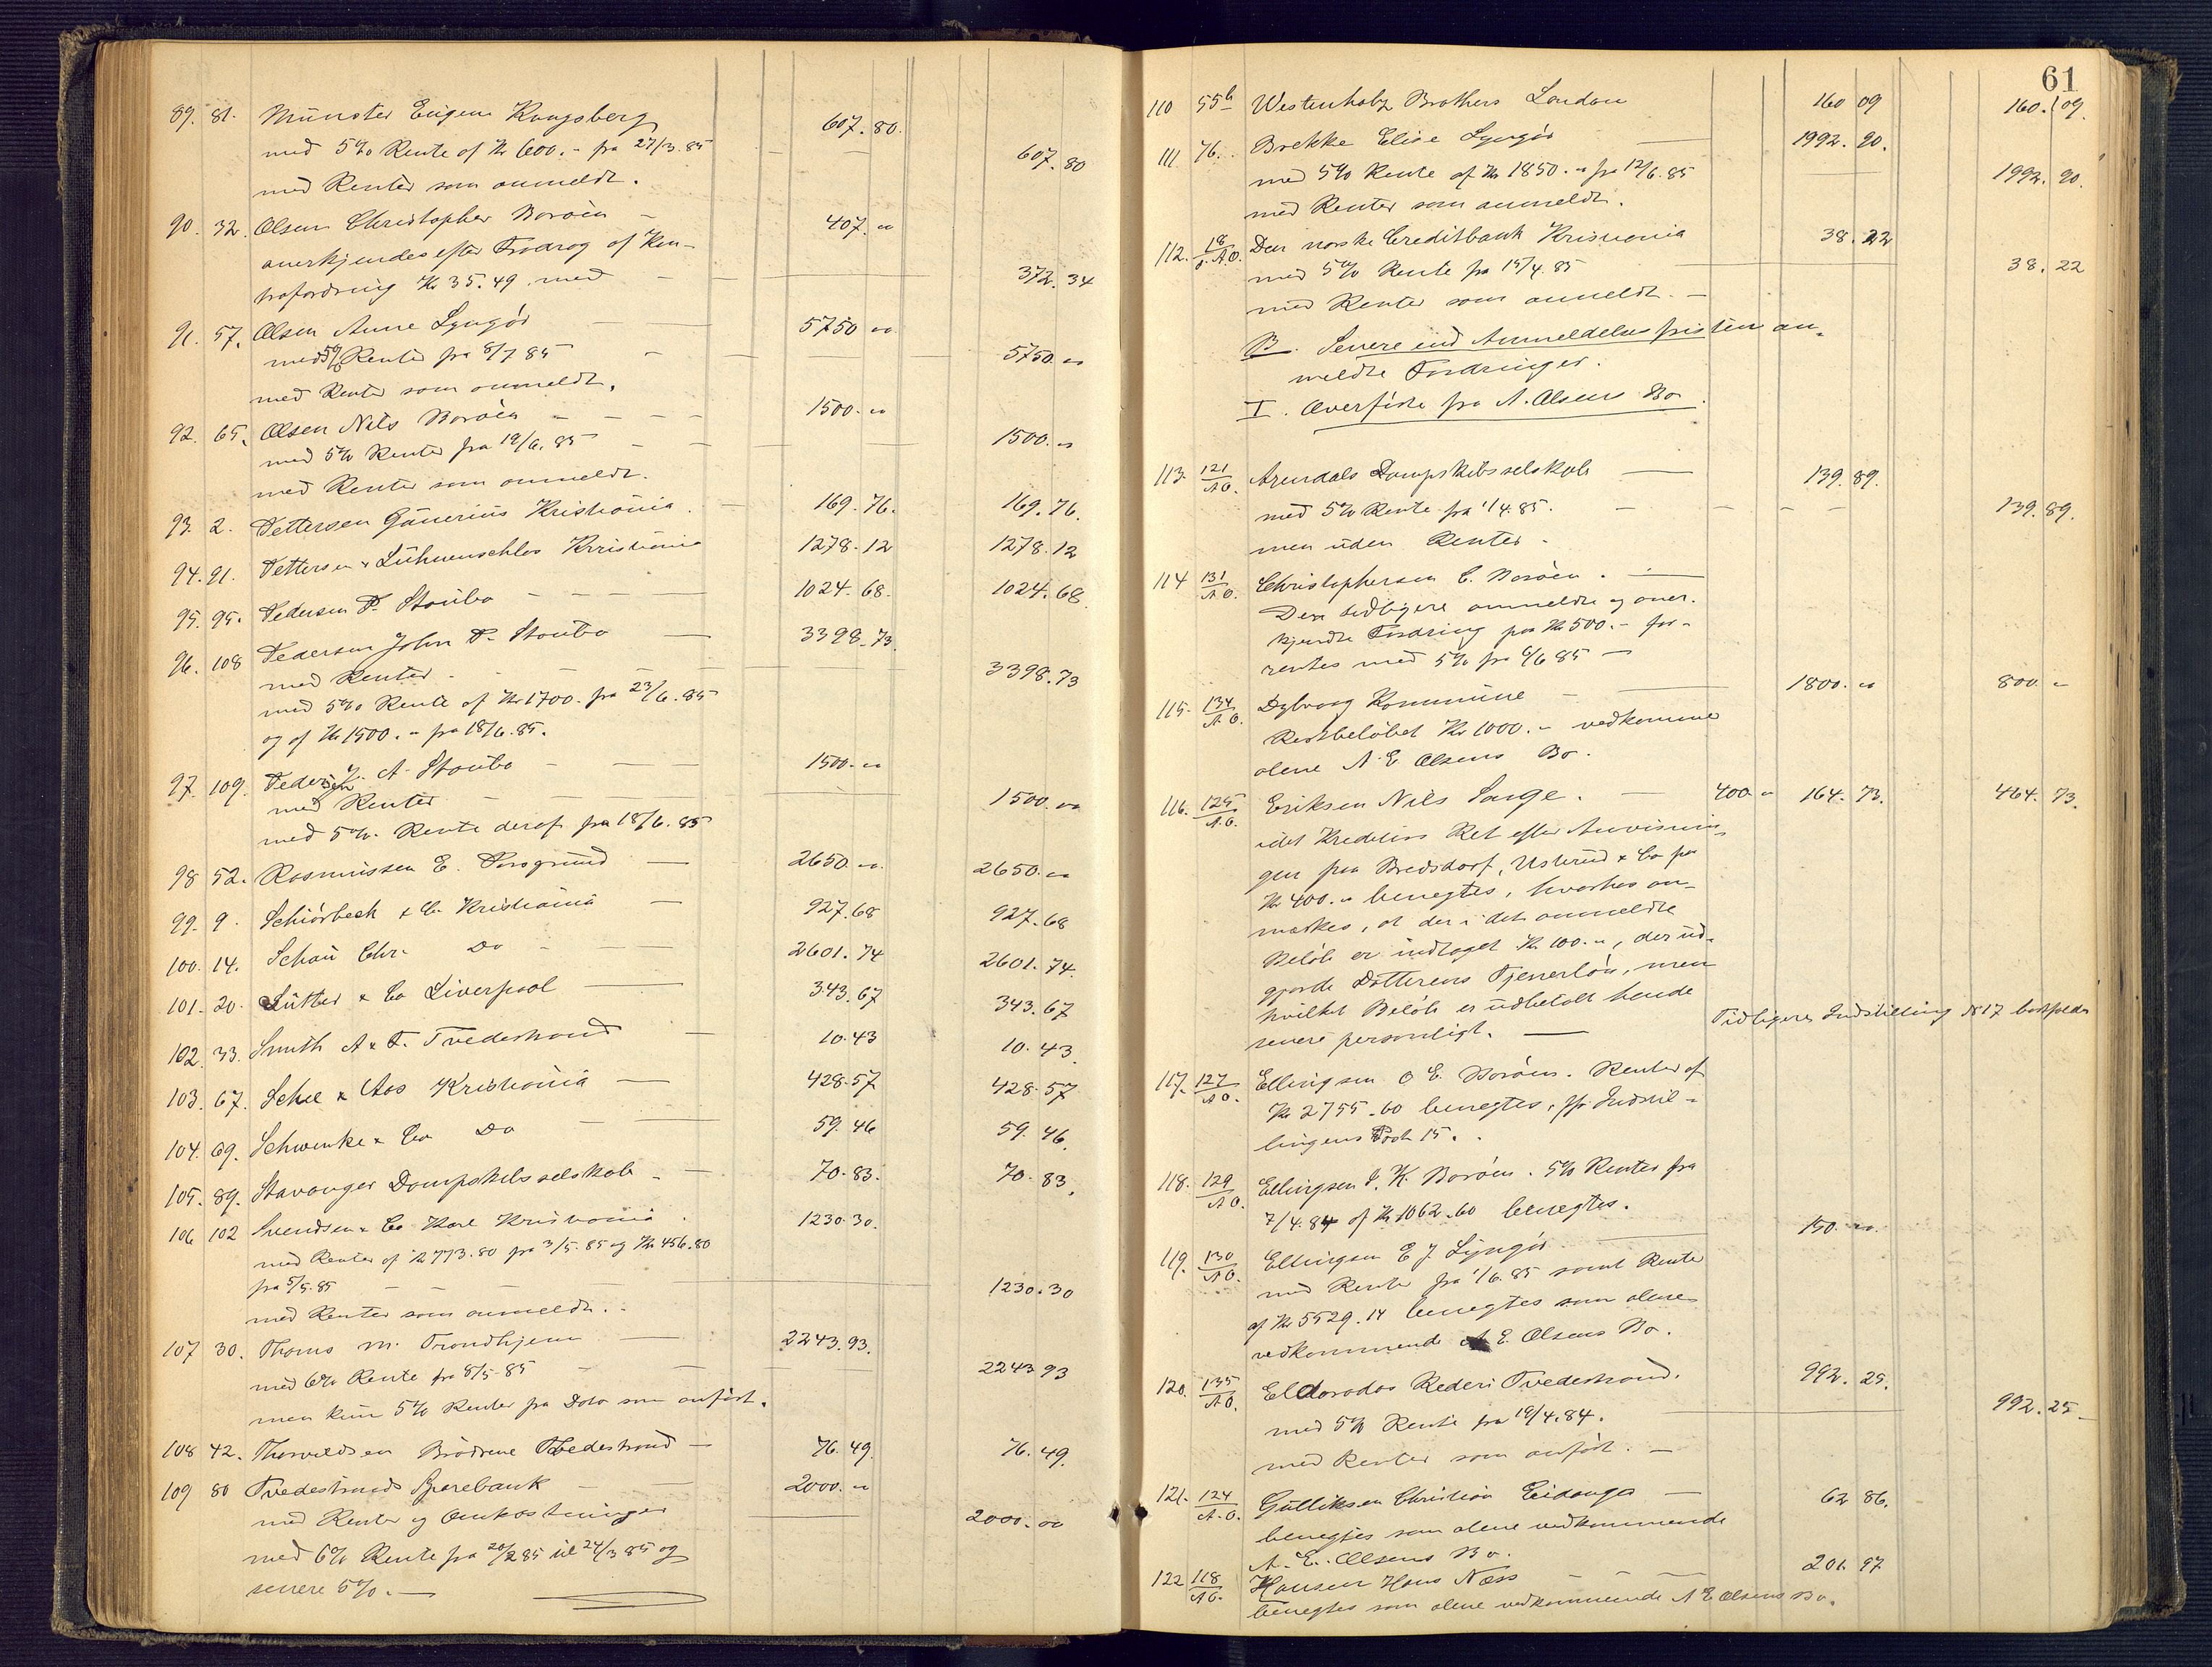 89. 81. Münster Eugen Kongsberg 607. 80.
med 5% Rente af Kr 600.- fra 27/3. 85 607. 80
med Renter som anmeldt.
90. 32. Olsen Christopher Borøen - 407. "
anerkjendes efter Fradrag af Kon-
trafordring Kr 35.49 med 372. 34
91. 57. Olsen Anne Lyngør 5750 "
med 5% Renter fra 8/7 85 5750. "
med Renter som anmeldt.
92. 65. Olsen Nils Borøen 1500. "
med 5% Renter fra 19/6. 85 1500. "
med Renter som anmeldt.
93. 2. Pettersen Gunerius Kristiania. 169. 76. 169. 76.
94. 91. Pettersen & Lühnenschlos Kristiania 1278. 12 1278. 12
95. 95. Pedersen P. Stoubo 1024. 68. 1024. 68.
96. 108 Pedersen John P. Stoubo 3398. 73.
med Renter. 3398. 73
med 5% Rente af Kr 1700. fra 23/6. 85
og af Kr 1500. " fra 18/6. 85.
97. 109. Pedersen J. A. Stoubo 1500. "
med Renter 1500. "
med 5% Rente deraf fra 18/6. 85
98 52. Rasmussen E. Porsgrund 2650. " 2650. "
99. 9. Schiörbeck & Co. Kristiania 927. 68 927. 68
100. 14. Schou Chr. Do 2601. 74 2601. 74.
101. 20. Sutter & Co Liverpool 343. 67 343. 67
102. 33. Smith A & F. Tvedestrand 10. 43 10. 43.
103. 67. Schee & Aas Kristiania 428. 57 428. 57
104. 69. Schwenke & Co Do 59. 46 59. 46.
105. 89. Stavanger Dampskibsselskab 70. 83. 70. 83.
106 102 Svendsen & Co Karl Kristiania 1230. 30.
med Renter af Kr 773.80 fra 3/5. 85 og Kr 456.80
fra 5/5. 85 1230. 30
med Renter som anmeldt.
107 30. Thams M. Trondhjem 2243. 93.
med 6% Rente fra 8/5 85 2243 93
men kun 5% Renter fra Dato som anført.
108 42. Thorvaldsen Brødrene Tvedestrand 76. 49. 76. 49.
109 80 Tvedestrands Sparebank 2000. "
med Renter og Omkostninger 2000. "
med 6% Rente fra 20/2 85 til 24/3 85 og
senere 5%.
61
110 55b Westenholz Brothers London 160 09 160. 09.
111 76. Brekke Elise Lyngør 1992. 90.
med 5% Rente af Kr 1850. " fra 12/6. 85 1992. 90.
med Renter som anmeldt.
112. 18/d. A.O. Den norske Creditbank Kristiania 38. 22
med 5% Rente fra 15/4. 85 38. 22
med Renter som anmeldt.
B. Senere end Anmeldelsesfristen an-
meldte Fordringer.
I. Overførte fra A. Olsens Bo.
113. 121/A O. Arendals Dampskibsselskab 139. 89.
med 5% Rente fra 1/4. 85. 139. 89.
men uden Renter.
114 131/A O. Christophersen C. Borøen.
Den tidligere anmeldte og aner-
kjendte Fordring paa Kr 500.- for-
rentes med 5% fra 6/6 85
115. 134/A. O. Dybvaag Kommune 1800. " 800. "
Restbeløbet Kr 1000. " vedkomme
alene A. E Olsens Bo.
116. 125/A.O. Eriksen Nils Sauge. 400. " 164. 73. 464. 73.
idet Kreditors Ret efter Anvisnin-
gen paa Bredsdorf, Ustrud & Co paa
Kr 400. " benegtes, hvorhos an-
mærkes, at der i det anmeldte
Beløb er indtaget Kr. 100. ", der ud-
gjorde Datterens Tjenerløn, men
hvilket Beløb er udbetalt hende
senere personligt.
Tidligere Indstilling No 17 bortfalder
117. 127/A O. Ellingsen O E. Borøen. Renter af
Kr 2755.60 benegtes, jfr Indstil-
lingens Post 15.
118. 129/A O. Ellingsen J. K. Borøen. 5% Renter fra
7/4. 84 af Kr 1062.60 benegtes.
119. 130/A O. Ellingsen E J. Lyngør 150. "
med Rente fra 1/6. 85 samt Rente
af Kr 5529.14 benegtes som alene
vedkommende A E. Olsens Bo.
120. 135/A O. Eldorados Rederi Tvedestrand. 992. 25.
med 5% Rente fra 19/4. 84. 992. 25
med Renter som anført.
121. 124/A. O. Gulliksen Christian Eidanger 62 86.
benegtes som alene vedkommende
A. E. Olsens Bo.
122 118/A O. Hansen Hans Næss 201. 97
benegtes som alene vedkommende A E Olsens Bo.